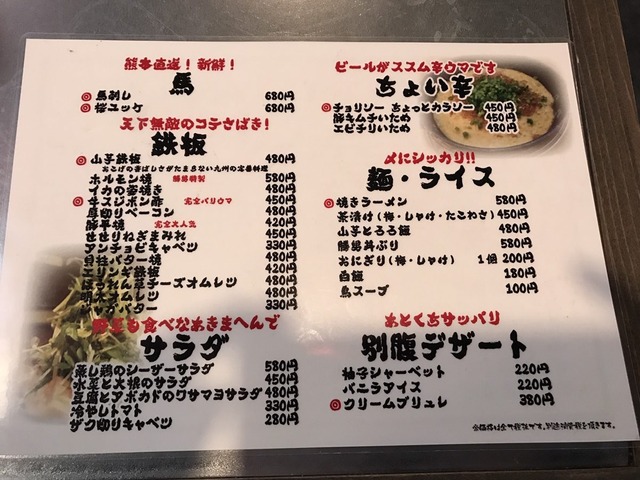 熊本直送！新鮮！
馬
馬刺し 680円
桜ユッケ 680円
天下無敵のコテさばき！
鉄板
山芋鉄板 480円
おこげの香ばしさがたまらない九州の定番料理
ホルモン焼 勝男特製 580円
イカの姿焼き 480円
牛スジポン酢 完全バリウマ 450円
厚切りベーコン 480円
豚平焼 完全大人気 420円
せせりねぎまみれ 450円
アンチョビキャベツ 330円
貝柱バター焼 480円
エリンギ鉄板 420円
ほうれん草チーズオムレツ 480円
明太オムレツ 480円
ジャガバター 330円
野菜も食べなあきまへんで
サラダ
蒸し鶏のシーザーサラダ 580円
水菜と大根のサラダ 450円
豆腐とアボカドのワサマヨサラダ 480円
冷やしトマト 330円
ザク切りキャベツ 280円
ビールがススム辛ウマです
ちょい辛
チョリソー ちょっとカラソー 450円
豚キムチいため 450円
エビチリいため 480円
〆にシッカリ!!
麺・ライス
焼きラーメン 580円
茶漬け（梅・しゃけ・たこわさ） 450円
山芋とろろ飯 480円
勝男丼ぶり 580円
おにぎり（梅・しゃけ） 1個 200円
白飯 180円
鳥スープ 100円
あとくちサッパリ
別腹デザート
柚子シャーベット 220円
バニラアイス 220円
クリームブリュレ 380円